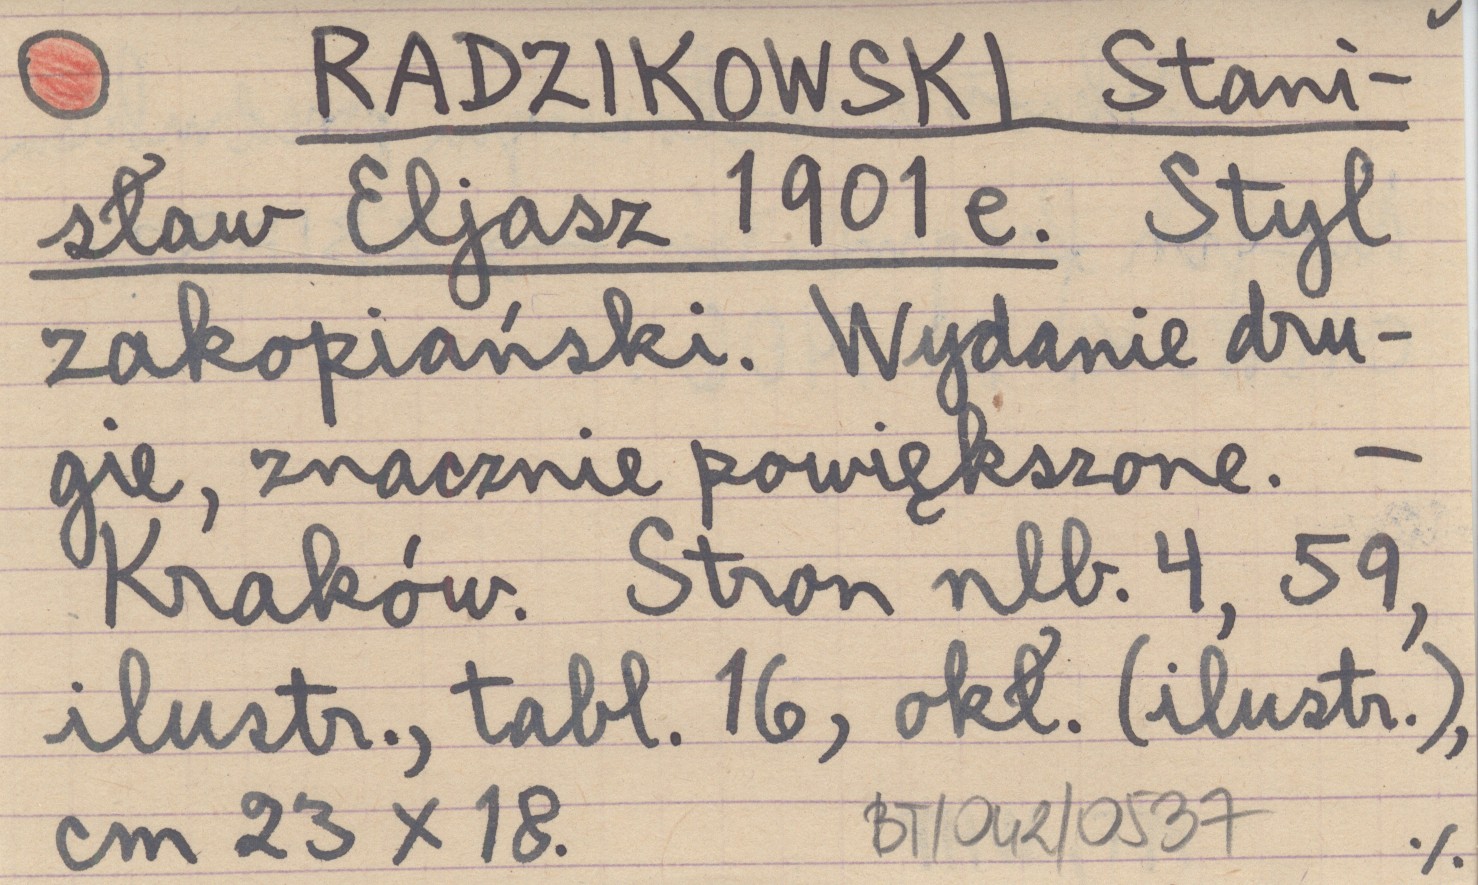 RADZIKOWSKI Stani-
sław Eljasz 1901 e. Styl
zakopiański. Wydanie dru-
gie, znacznie powiększone. —
Kraków. Stron nlb. 4, 59,
ilustr., tabl. 16, okł. (ilustr.),
cm 23 x 18.
BT/042/0537
./.